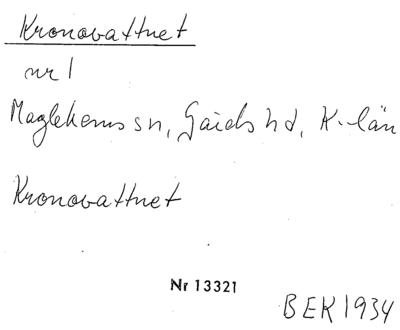 Kronovattnet
nr 1
Maglehems sn, Gärds hd, K-län
Kronovattnet
Nr 13321
BEK 1934